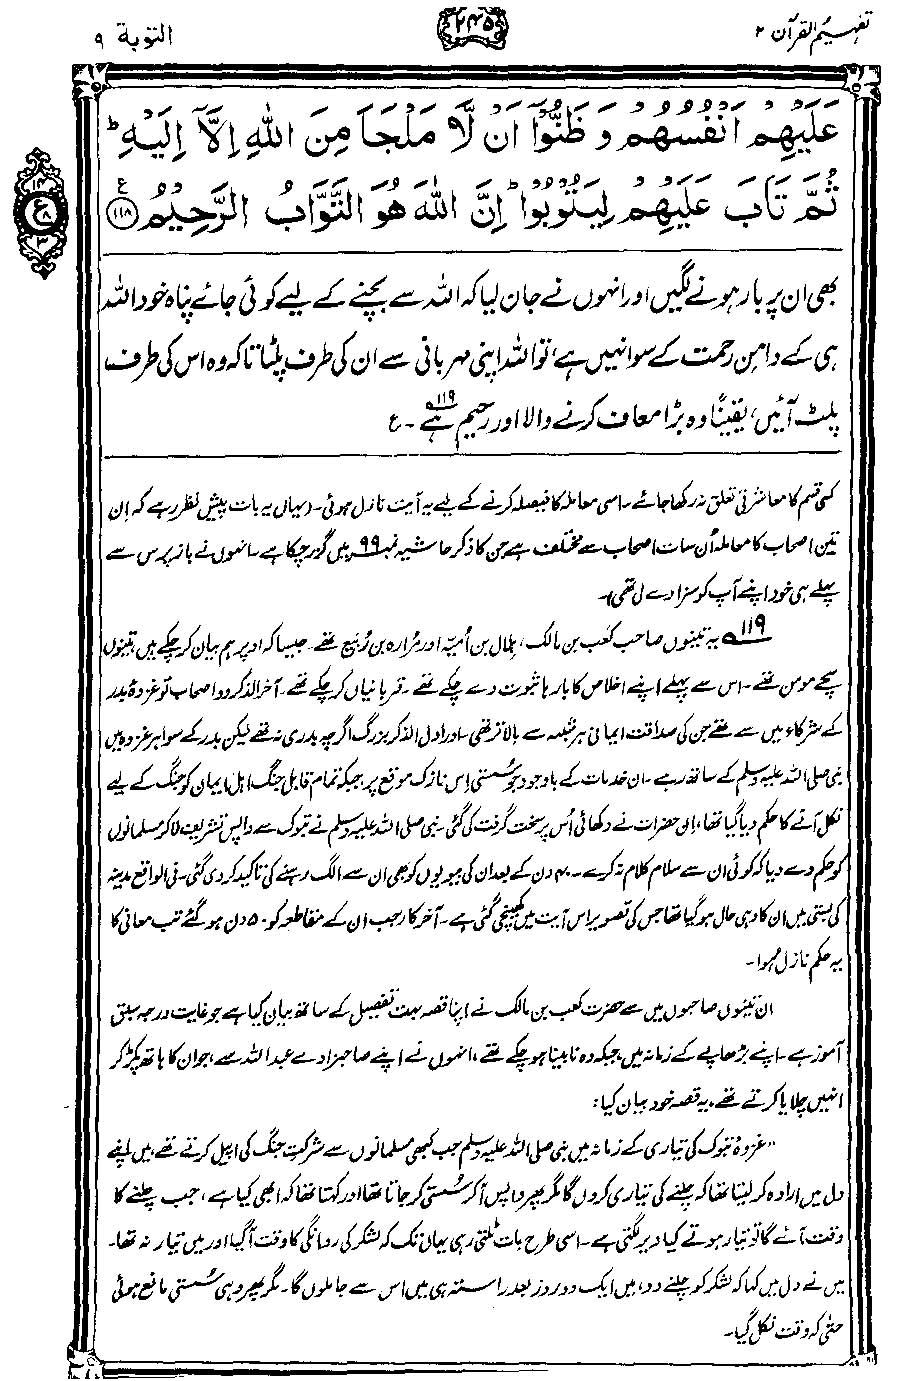 تفہیم القرآن ۲
۲۴۵
التوبة ۹
عَلَيْهِمْ اَنْفُسُهُمْ وَ ظَنُّوْۤا اَنْ لَّا مَلْجَاَ مِنَ اللّٰهِ اِلَّاۤ اِلَيْهِ ؕ
ثُمَّ تَابَ عَلَيْهِمْ لِيَتُوْبُوْا ؕ اِنَّ اللّٰهَ هُوَ التَّوَّابُ الرَّحِيْمُ ﴿۱۱۸﴾ ع
۱۴
ع ۸
۳
بھی ان پر بار ہونے لگیں اور انہوں نے جان لیا کہ اللہ سے بچنے کے لیے کوئی جائے پناہ خود اللہ
ہی کے دامنِ رحمت کے سوا نہیں ہے، تو اللہ اپنی مہربانی سے ان کی طرف پلٹا تاکہ وہ اس کی طرف
پلٹ آئیں، یقیناً وہ بڑا معاف کرنے والا اور رحیم ہے ۱۱۹۔ ع
کسی قسم کا معاشرتی تعلق نہ رکھا جائے۔ اسی معاملہ کا فیصلہ کرنے کے لیے یہ آیت نازل ہوئی۔ (یہاں یہ بات پیش نظر رہے کہ اِن
تین اصحاب کا معاملہ اُن سات اصحاب سے مختلف ہے جن کا ذکر حاشیہ نمبر ۹۹ میں گزر چکا ہے۔ انہوں نے باز پرس سے
پہلے ہی خود اپنے آپ کو سزا دے لی تھی)۔
۱۱۹ یہ تینوں صاحب کعب بن مالک، ہلال بن اُمیّہ اور مُرارہ بن رُبیع تھے۔ جیسا کہ اوپر ہم بیان کر چکے ہیں، تینوں
سچے مومن تھے۔ اس سے پہلے اپنے اخلاص کا بارہا ثبوت دے چکے تھے۔ قربانیاں کر چکے تھے۔ آخر الذکر دو اصحاب تو غزوۂ بدر
کے شرکاء میں سے تھے جن کی صداقت ایمانی ہر شبہ سے بالاتر تھی۔ اور اول الذکر بزرگ اگرچہ بدری نہ تھے لیکن بدر کے سوا ہر غزوہ میں
نبی صلی اللہ علیہ وسلم کے ساتھ رہے۔ ان خدمات کے باوجود جو سُستی اِس نازک موقع پر جبکہ تمام قابل جنگ اہل ایمان کو جنگ کے لیے
نکل آنے کا حکم دیا گیا تھا، اِن حضرات نے دکھائی اُس پر سخت گرفت کی گئی۔ نبی صلی اللہ علیہ وسلم نے تبوک سے واپس تشریف لا کر مسلمانوں
کو حکم دے دیا کہ کوئی ان سے سلام کلام نہ کرے۔ ۴۰ دن کے بعد ان کی بیویوں کو بھی ان سے الگ رہنے کی تاکید کر دی گئی۔ فی الواقع مدینہ
کی بستی میں ان کا وہی حال ہو گیا تھا جس کی تصویر اس آیت میں کھینچی گئی ہے۔ آخر کار جب ان کے مقاطعہ کو ۵۰ دن ہو گئے تب معافی کا
یہ حکم نازل ہُوا۔
ان تینوں صاحبوں میں سے حضرت کعب بن مالک نے اپنا قصہ بہت تفصیل کے ساتھ بیان کیا ہے جو غایت درجہ سبق
آموز ہے۔ اپنے بڑھاپے کے زمانہ میں، جبکہ وہ نابینا ہو چکے تھے، انہوں نے اپنے صاحبزادے عبداللہ سے، جو ان کا ہاتھ پکڑ کر
انہیں چلایا کرتے تھے، یہ قصہ خود بیان کیا:
”غزوۂ تبوک کی تیاری کے زمانہ میں نبی صلی اللہ علیہ وسلم جب کبھی مسلمانوں سے شرکتِ جنگ کی اپیل کرتے تھے، میں اپنے
دل میں ارادہ کر لیتا تھا کہ چلنے کی تیاری کروں گا مگر پھر واپس آ کر سُستی کر جاتا تھا اور کہتا تھا کہ ابھی کیا ہے، جب چلنے کا
وقت آئے گا تو تیار ہوتے کیا دیر لگتی ہے۔ اسی طرح بات ٹلتی رہی یہاں تک کہ لشکر کی روانگی کا وقت آ گیا اور میں تیار نہ تھا۔
میں نے دل میں کہا کہ لشکر کو چلنے دو، میں ایک دو روز بعد راستہ ہی میں اس سے جا ملوں گا۔ مگر پھر وہی سُستی مانع ہوئی
حتیٰ کہ وقت نکل گیا۔